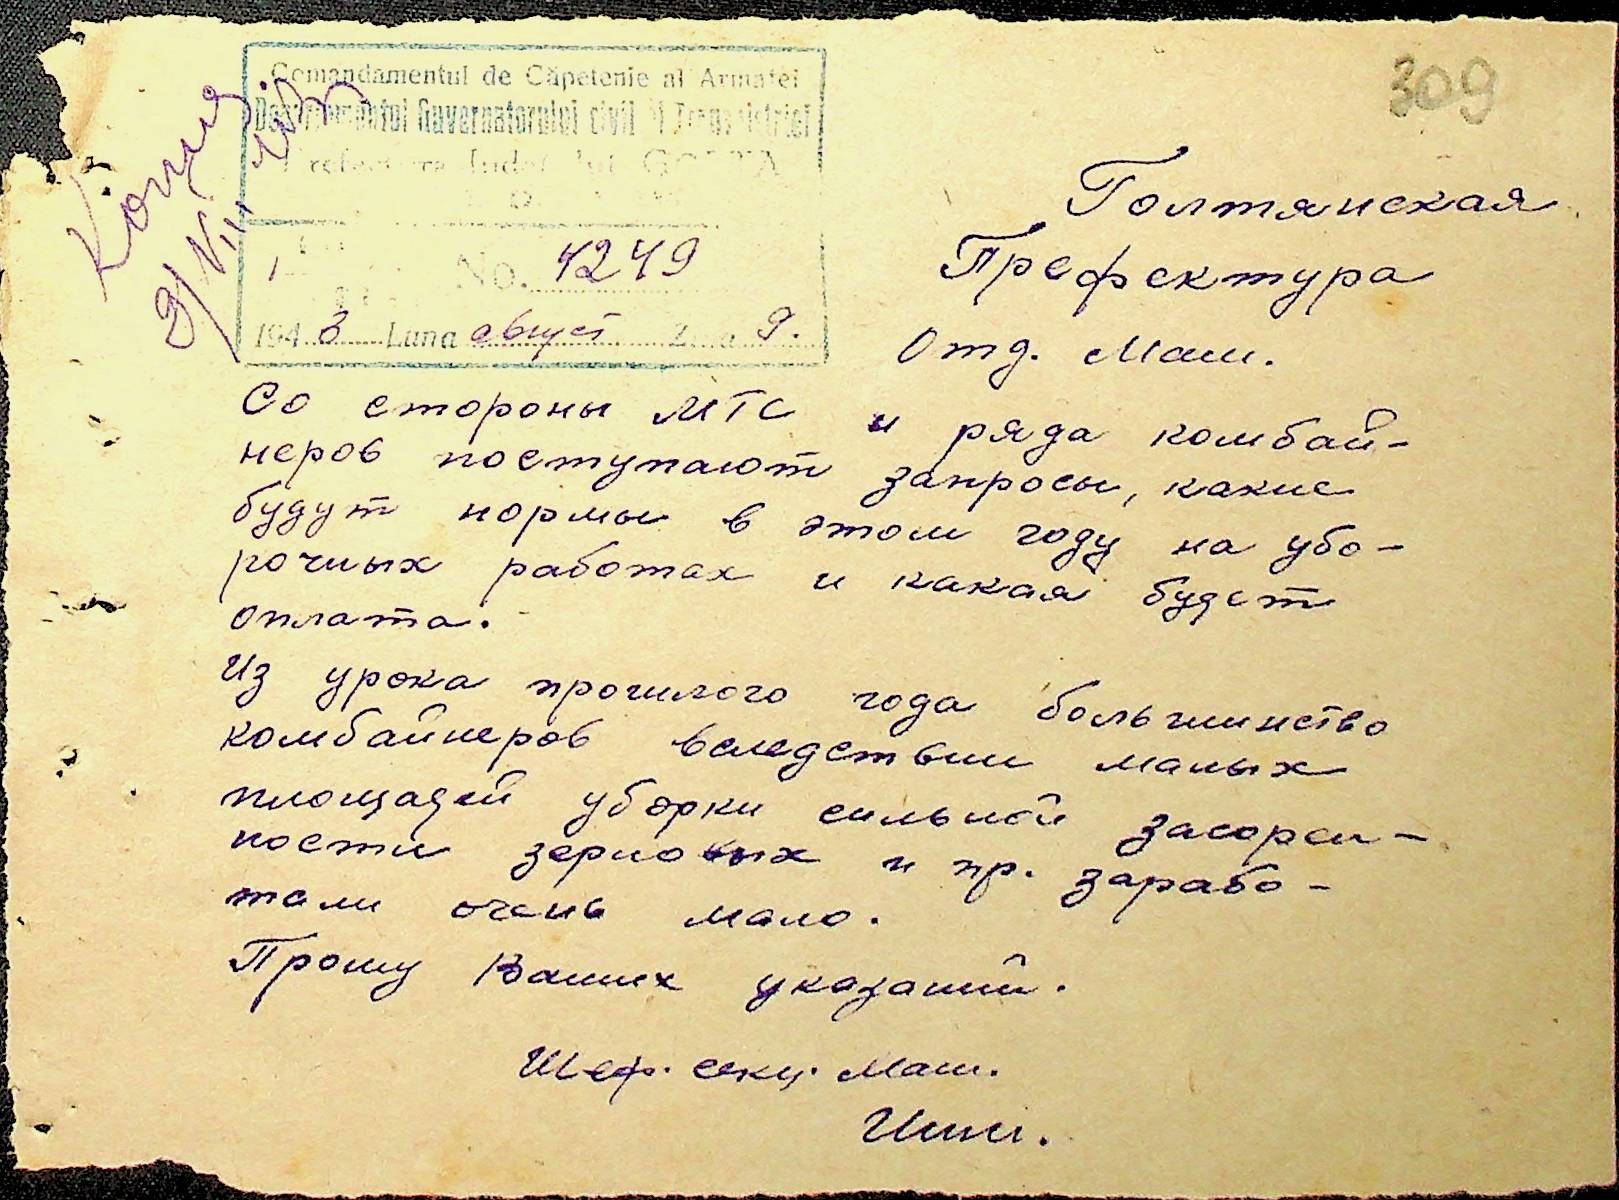 309
Копия
Comandamentul de Căpetenie al Armatei
Departamentul Guvernatorului civil al Transnistriei
Prefectura Județului GOLTA
No. 4249
1943 Luna август Ziua 9.
Голтянская
Префектура
Отд. Маш.
Со стороны МТС и ряда комбай-
неров поступают запросы, какие
будут нормы в этом году на убо-
рочных работах и какая будет
оплата.
Из урока прошлого года большинство
комбайнеров вследствии малых
площадей уборки сильной засорен-
ности зерновых и пр. зарабо-
тали очень мало.
Прошу Ваших указаний.
Шеф. секц. Маш.
Инж.